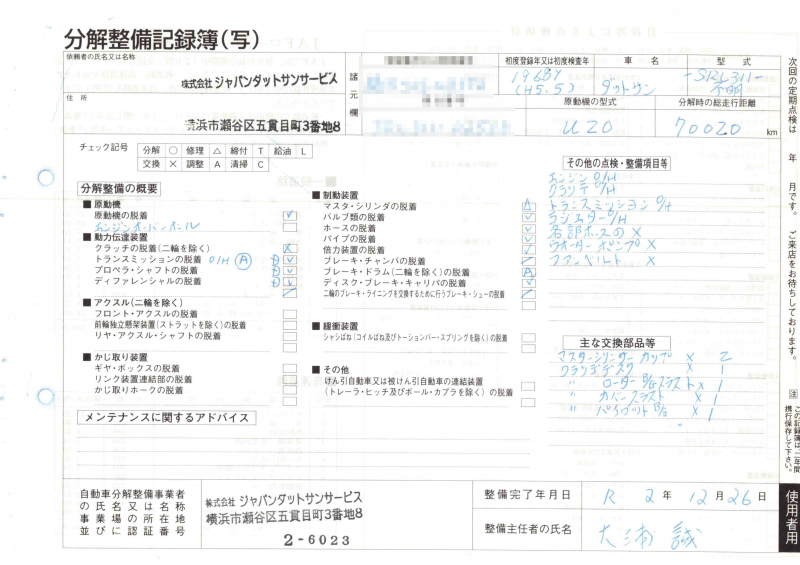 分解整備記録簿(写)
依頼者の氏名又は名称
株式会社 ジャパンダットサンサービス
住所
横浜市瀬谷区五貫目町3番地8
諸元欄
初度登録年又は初度検査年
車名
型式
1968Y
(H5.5)
ダットサン
SRL311
不明
原動機の型式
分解時の総走行距離
U20
70020 km
チェック記号
分解 ○ 修理 △ 締付 T 給油 L
交換 × 調整 A 清掃 C
分解整備の概要
■原動機
原動機の脱着
エンジンオーバーホール
■動力伝達装置
クラッチの脱着(二輪を除く)
トランスミッションの脱着 O/H Ⓐ
プロペラ・シャフトの脱着
ディファレンシャルの脱着
■アクスル(二輪を除く)
フロント・アクスルの脱着
前輪独立懸架装置(ストラットを除く)の脱着
リヤ・アクスル・シャフトの脱着
■かじ取り装置
ギヤ・ボックスの脱着
リンク装置連結部の脱着
かじ取りホークの脱着
■制動装置
マスタ・シリンダの脱着
バルブ類の脱着
ホースの脱着
パイプの脱着
倍力装置の脱着
ブレーキ・チャンバの脱着
ブレーキ・ドラム(二輪を除く)の脱着
ディスク・ブレーキ・キャリパの脱着
二輪のブレーキ・ライニングを交換するために行うブレーキ・シューの脱着
■緩衝装置
シャシばね(コイルばね及びトーションバー・スプリングを除く)の脱着
■その他
けん引自動車又は被けん引自動車の連結装置
(トレーラ・ヒッチ及びボール・カプラを除く)の脱着
その他の点検・整備項目等
エンジン O/H
クラッチ O/H
トランスミッション O/H
ラジエター O/H
各部ホースの ×
ウオーターポンプ ×
ファンベルト ×
主な交換部品等
マスターシリンダーカップ × 2
クラッチデスク × 1
〃
〃 カバー
〃 パイロット B/g × 1
メンテナンスに関するアドバイス
自動車分解整備事業者
の氏名又は名称
事業場の所在地
並びに認証番号
株式会社 ジャパンダットサンサービス
横浜市瀬谷区五貫目町3番地8
2-6023
整備完了年月日
R 2 年 12 月 26 日
整備主任者の氏名
大浦 誠
次回の定期点検は 年 月です。ご来店をお待ちしております。
注 この記録簿は二年間携行保存して下さい。
使用者用